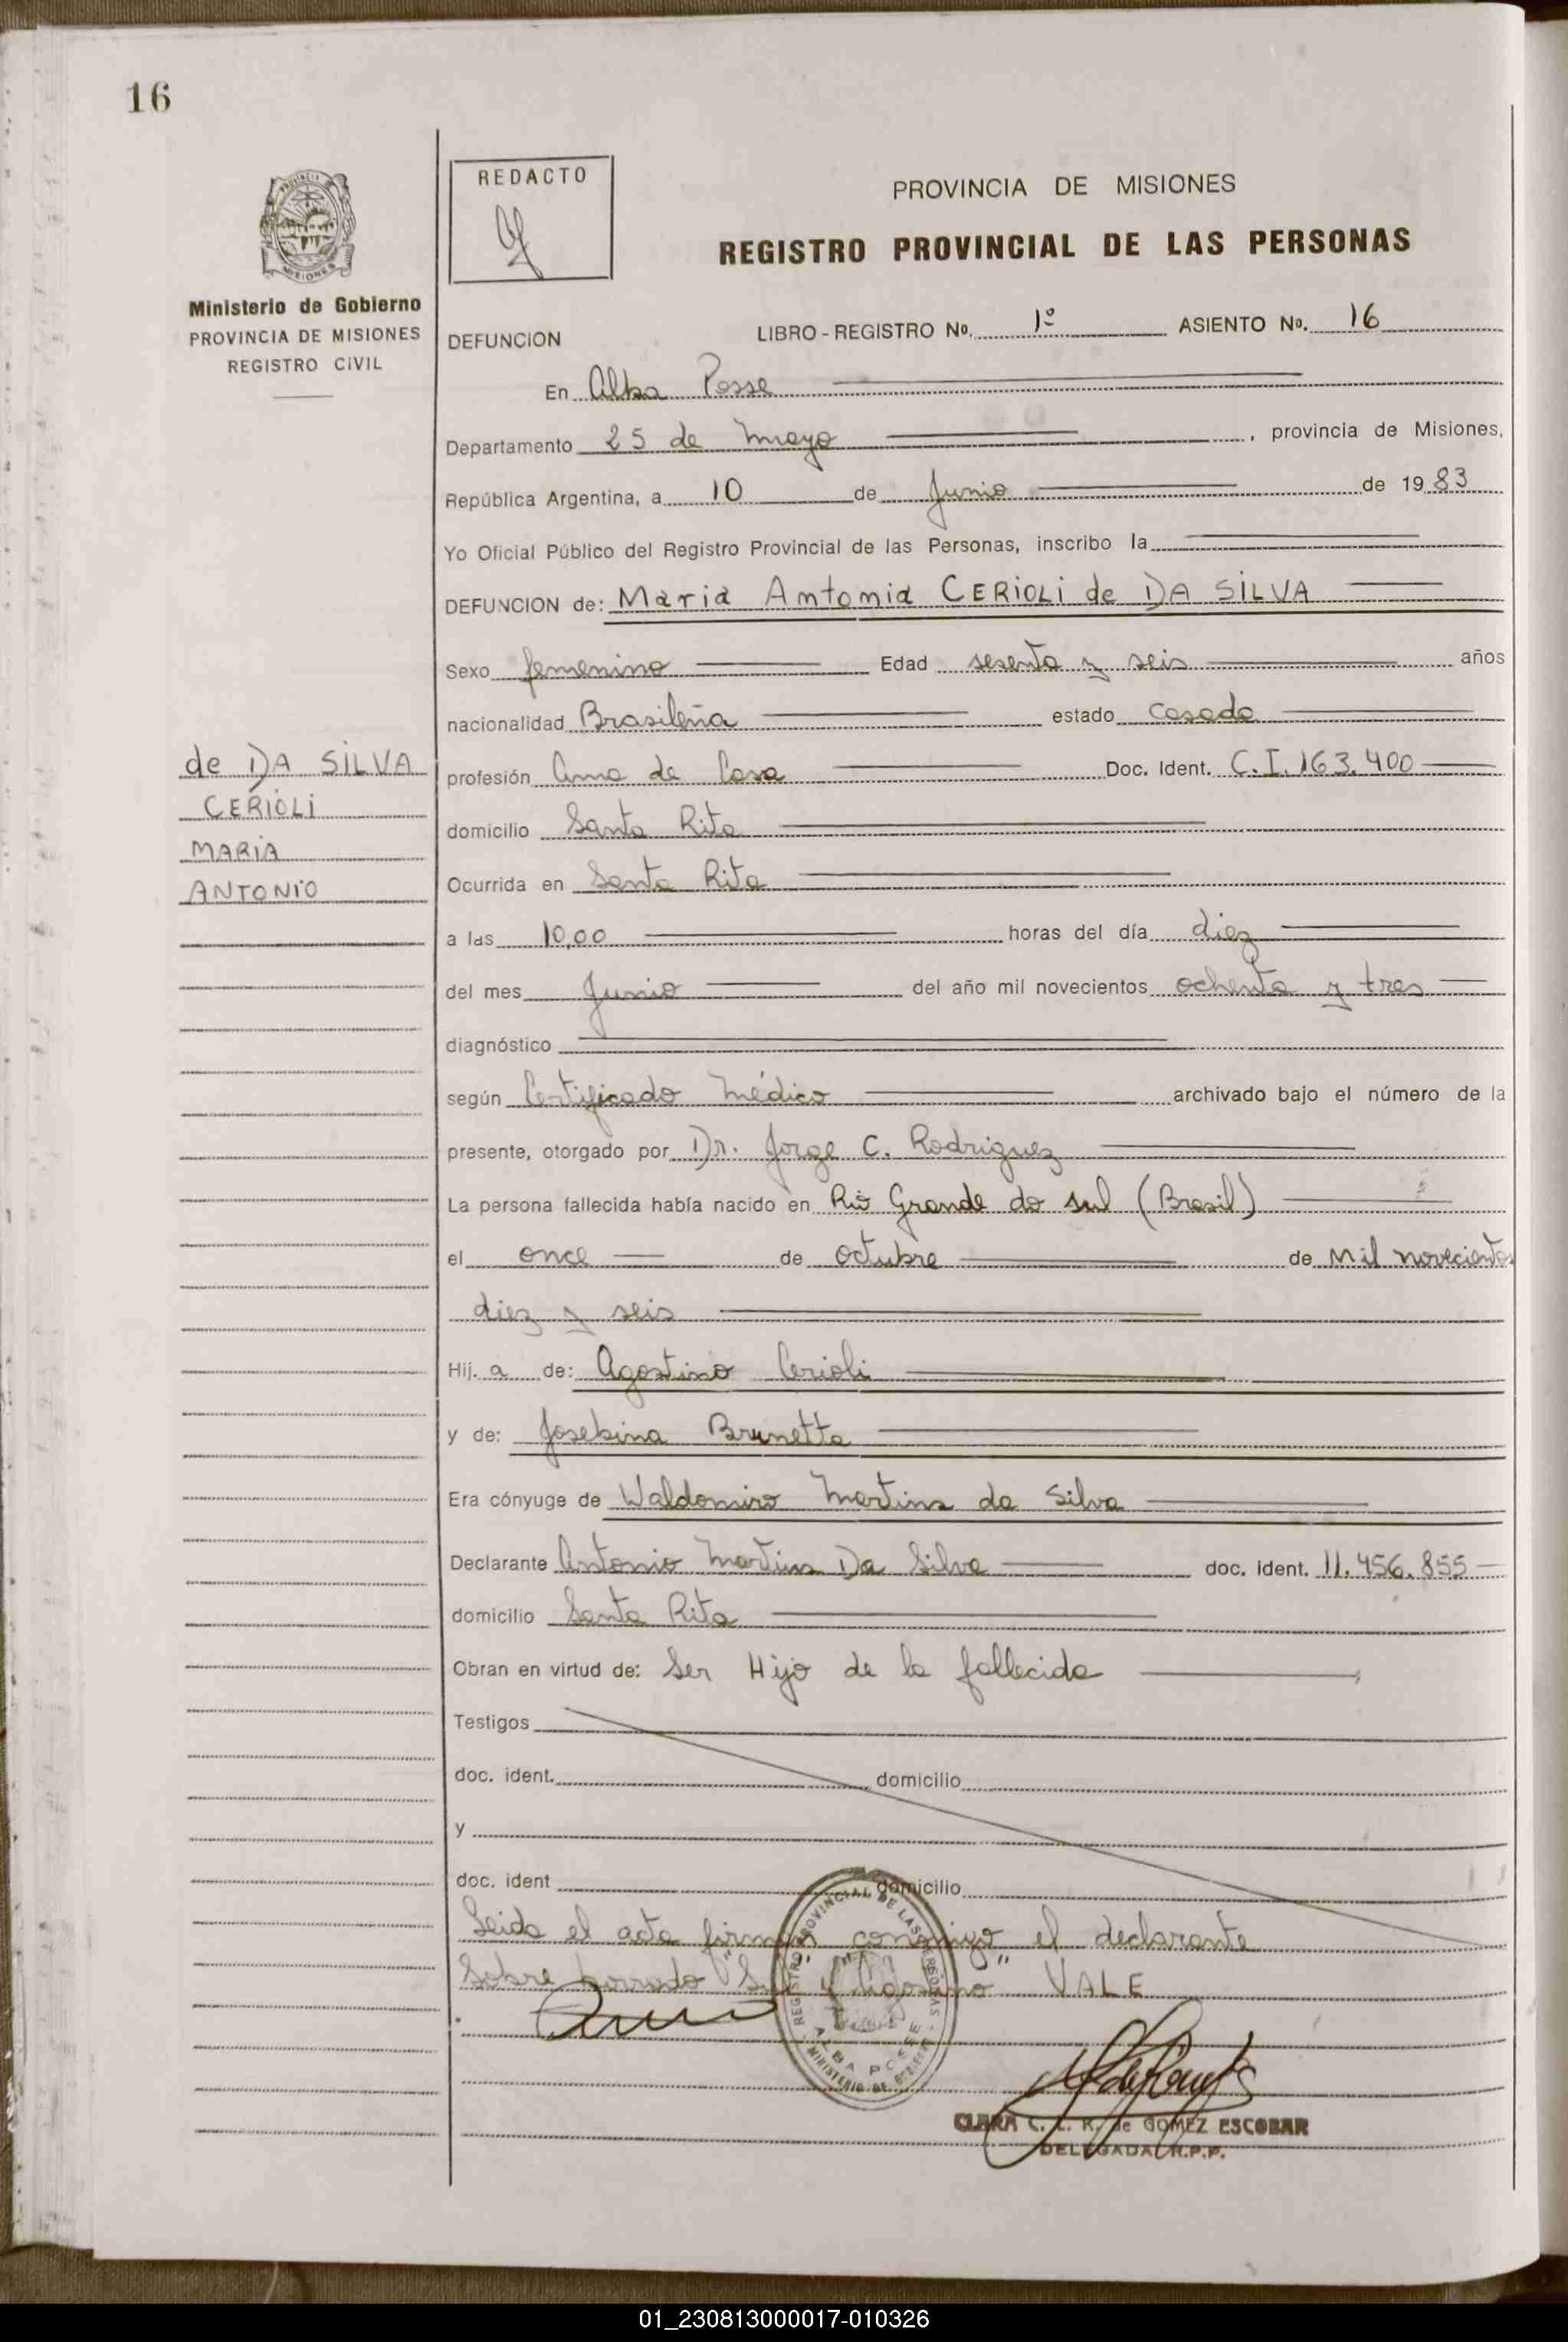 16
PROVINCIA
MISIONES
Ministerio de Gobierno
PROVINCIA DE MISIONES
REGISTRO CIVIL
REDACTO
PROVINCIA DE MISIONES
REGISTRO PROVINCIAL DE LAS PERSONAS
DEFUNCION LIBRO - REGISTRO No. 1º ASIENTO No. 16
En Alba Posse
Departamento 25 de Mayo, provincia de Misiones,
República Argentina, a 10 de Junio de 1983
Yo Oficial Público del Registro Provincial de las Personas, inscribo la
DEFUNCION de: Maria Antonia CERIOLI de DA SILVA
Sexo femenino Edad sesenta y seis años
nacionalidad Brasileña estado Casada
de DA SILVA
CERIOLI
MARIA
ANTONIO
profesión Ama de Casa Doc. Ident. C.I. 163.400
domicilio Santa Rita
Ocurrida en Santa Rita
a las 10,00 horas del día diez
del mes Junio del año mil novecientos ochenta y tres
diagnóstico
según Certificado Médico archivado bajo el número de la
presente, otorgado por Dr. Jorge C. Rodriguez
La persona fallecida había nacido en Rio Grande do sul (Brasil)
el once de octubre de Mil novecientos
diez y seis
Hij.a de: Agostino Cerioli
y de: Josebina Brunetta
Era cónyuge de Waldomiro Martins da Silva
Declarante Antonio Martins Da Silva doc. ident. 11.456.855
domicilio Santa Rita
Obran en virtud de: Ser Hijo de la fallecida
Testigos
doc. ident. domicilio
y
doc. ident domicilio
Leida el acta firman conmigo el declarante
Sobre borrado "Sul" y "Agostino" VALE
REGISTRO PROVINCIAL DE LAS PERSONAS
ALBA POSSE
MINISTERIO DE GOBIERNO
CLARA C. L. K. de GOMEZ ESCOBAR
DELEGADA R.P.P.
01_230813000017-010326